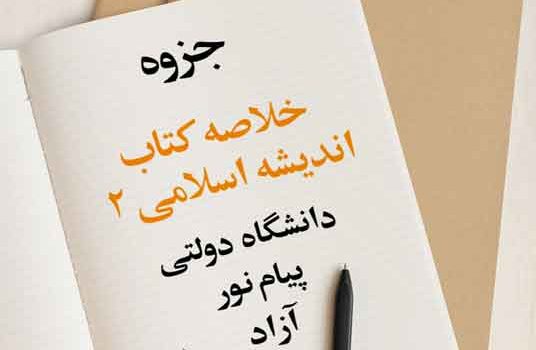 جزوه
خلاصه کتاب
اندیشه اسلامی ۲
دانشگاه دولتی
پیام نور
آزاد